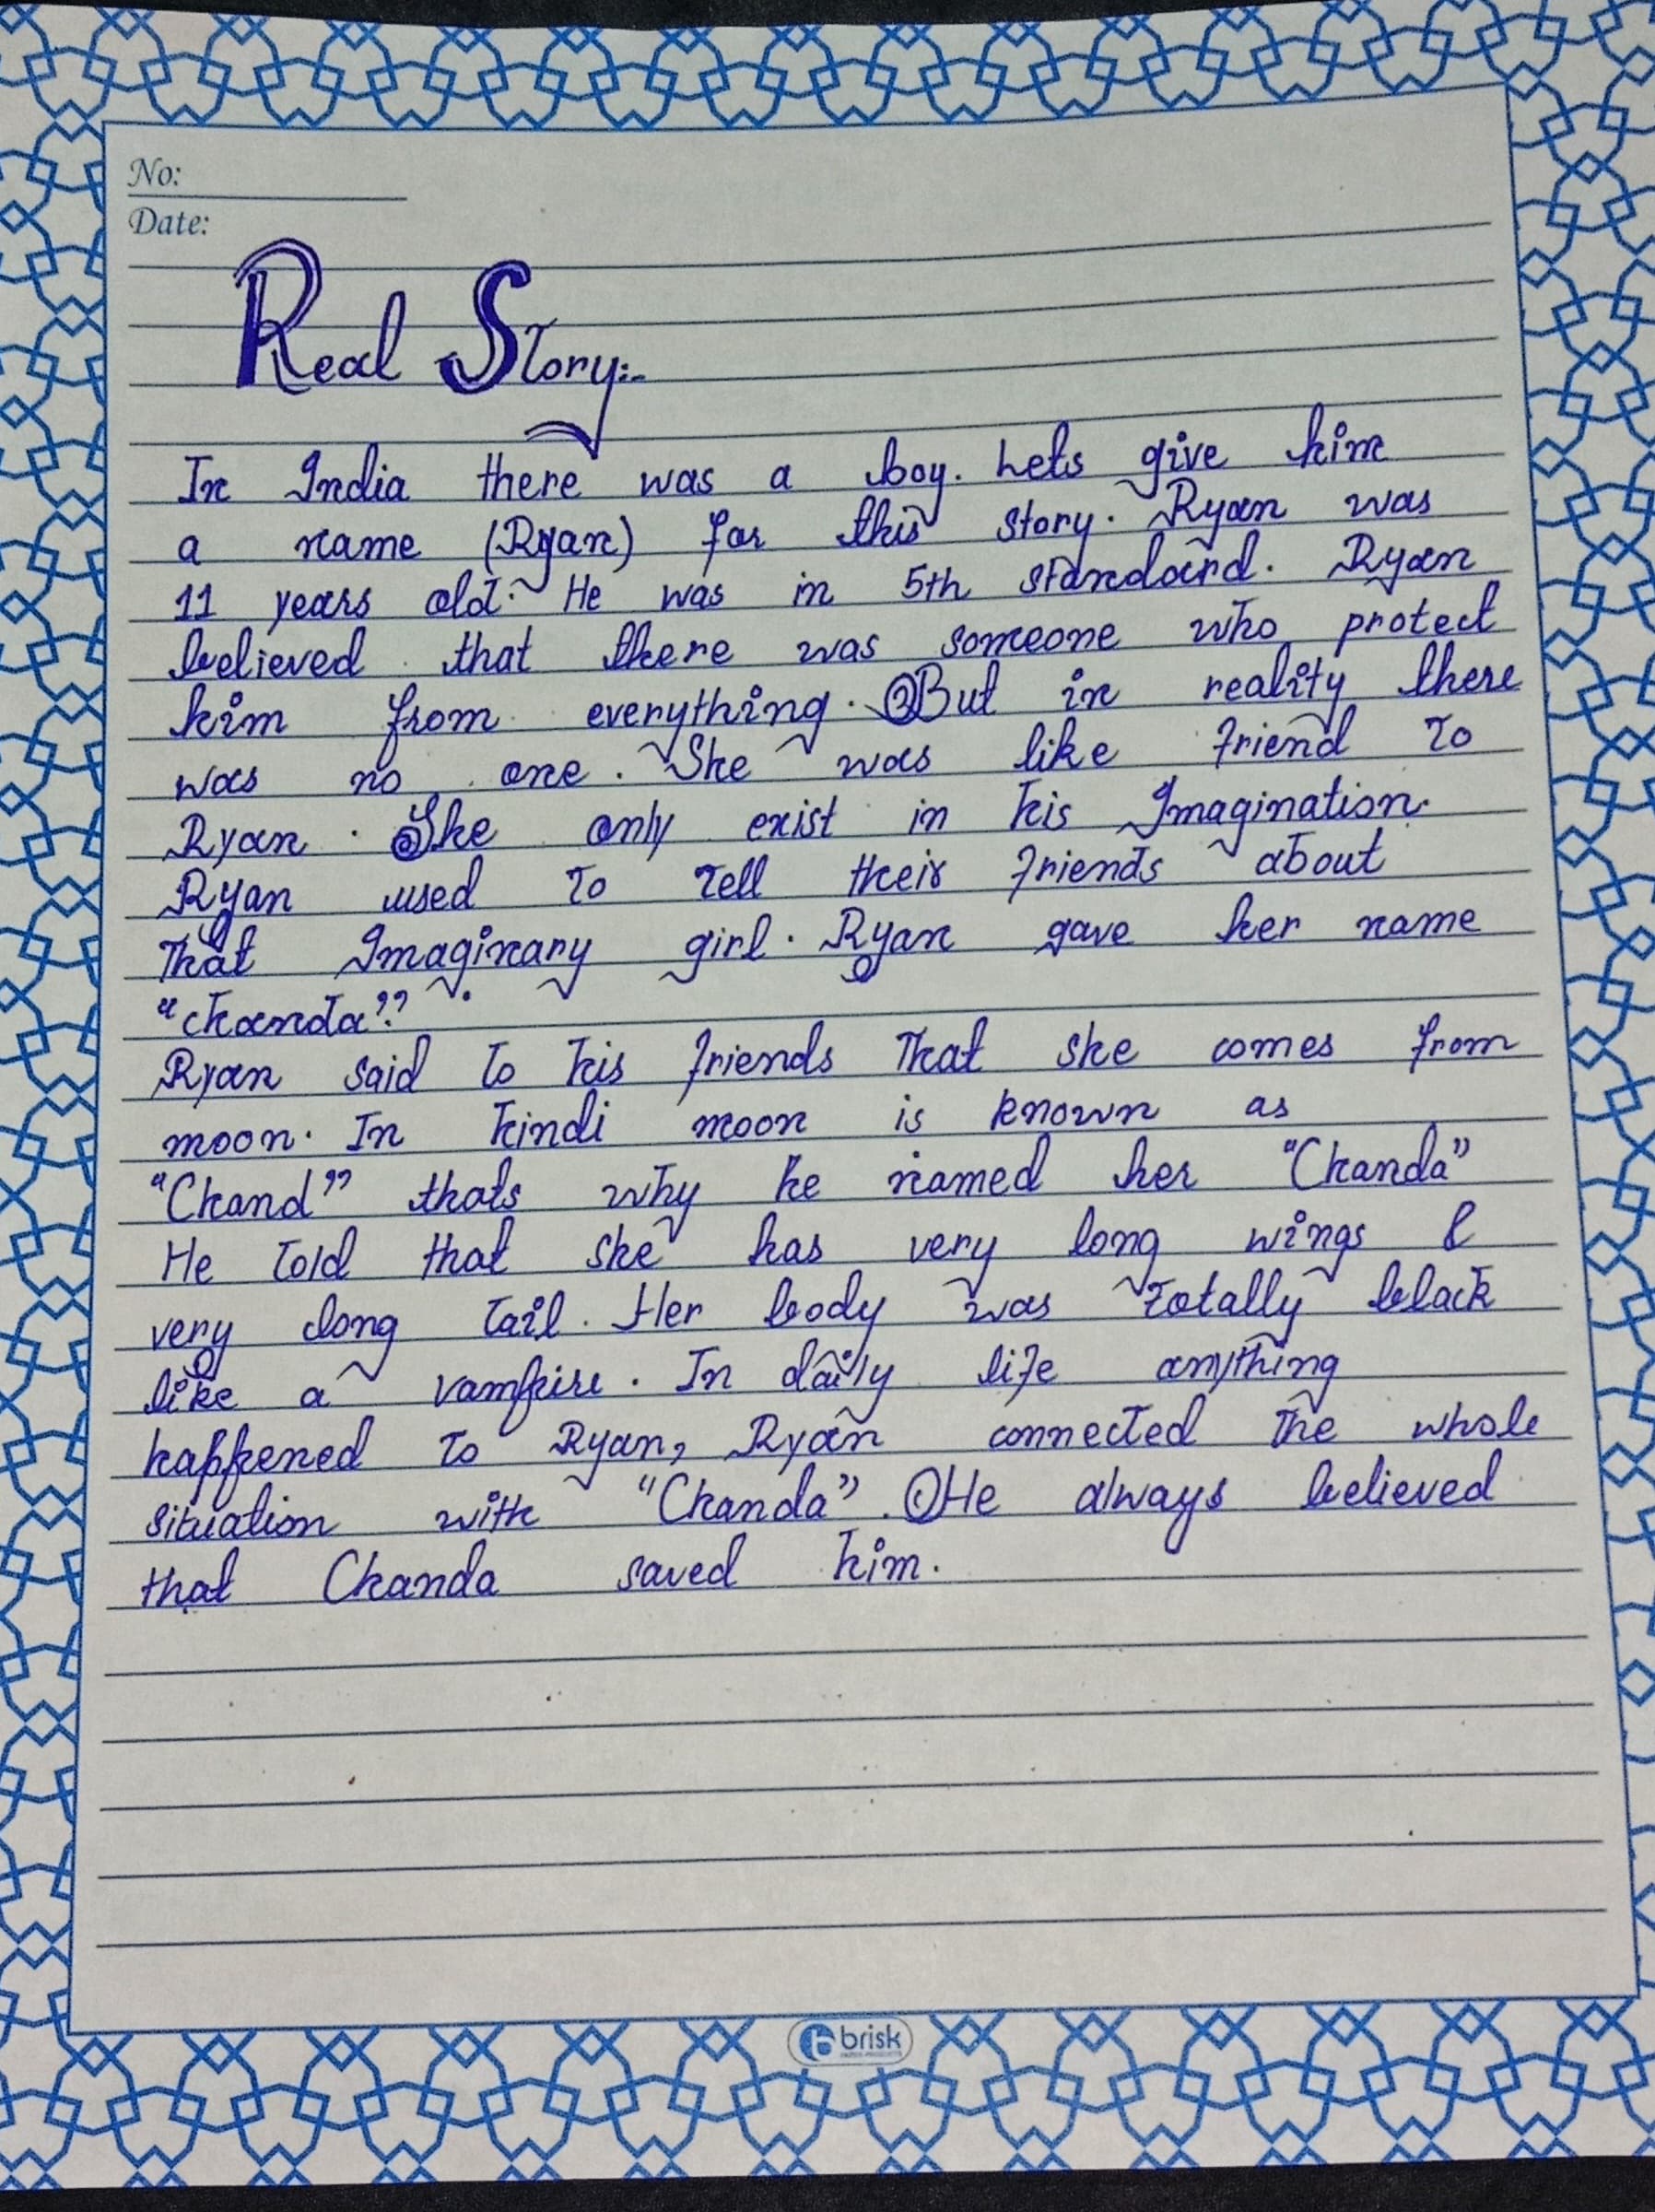 No:
Date:
Real Story:-
In India there was a boy. Lets give him
a name (Ryan) for this story. Ryan was
11 years old. He was in 5th standard. Ryan
believed that there was someone who protect
him from everything. But in reality there
was no one. She was like friend to
Ryan. She only exist in his Imagination.
Ryan used to tell their friends about
that Imaginary girl. Ryan gave her name
"chanda".
Ryan said to his friends that she comes from
moon. In hindi moon is known as
"Chand" thats why he named her "Chanda"
He told that she has very long wings &
very long tail. Her body was totally black
like a vampire. In daily life anything
happened to Ryan, Ryan connected the whole
situation with "Chanda". He always believed
that Chanda saved him.
brisk